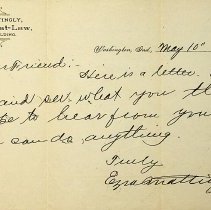 TTINGLY,
at-Law,
LDING.
Washington, Ind. May 10th
r Friend:-
Here is a letter.
and see what you th
e to hear from you
can do anything.
Truly
Ezra Matting